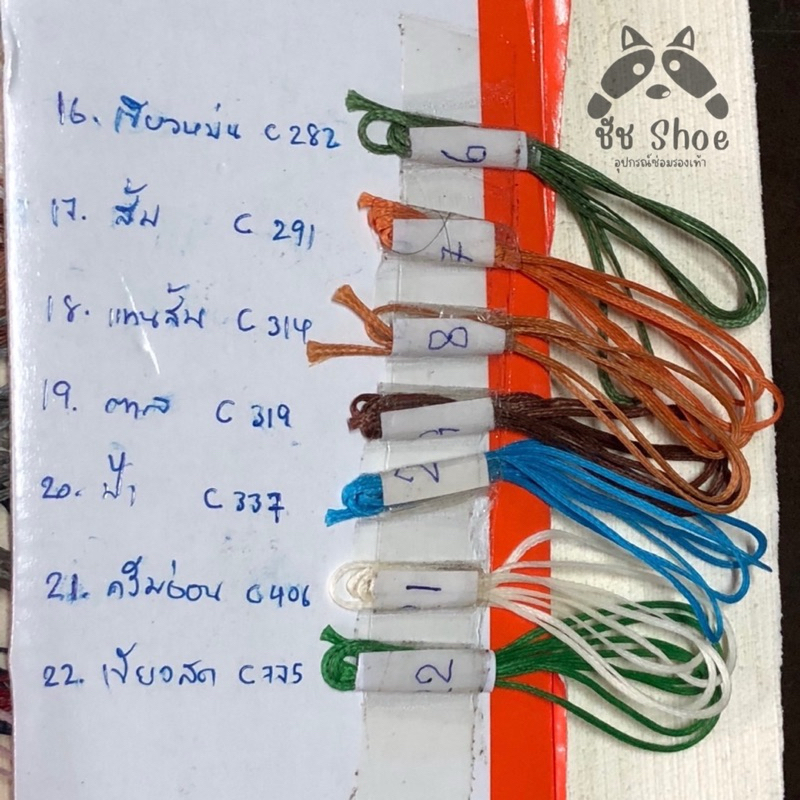 ชัช Shoe
อุปกรณ์ซ่อมรองเท้า
16. เขียวหม่น C 282
17. ส้ม C 291
18. แทนส้ม C 314
19. ตาล C 319
20. ฟ้า C 337
21. ครีมอ่อน C 406
22. เขียวสด C 775
6
7
8
2
1
2